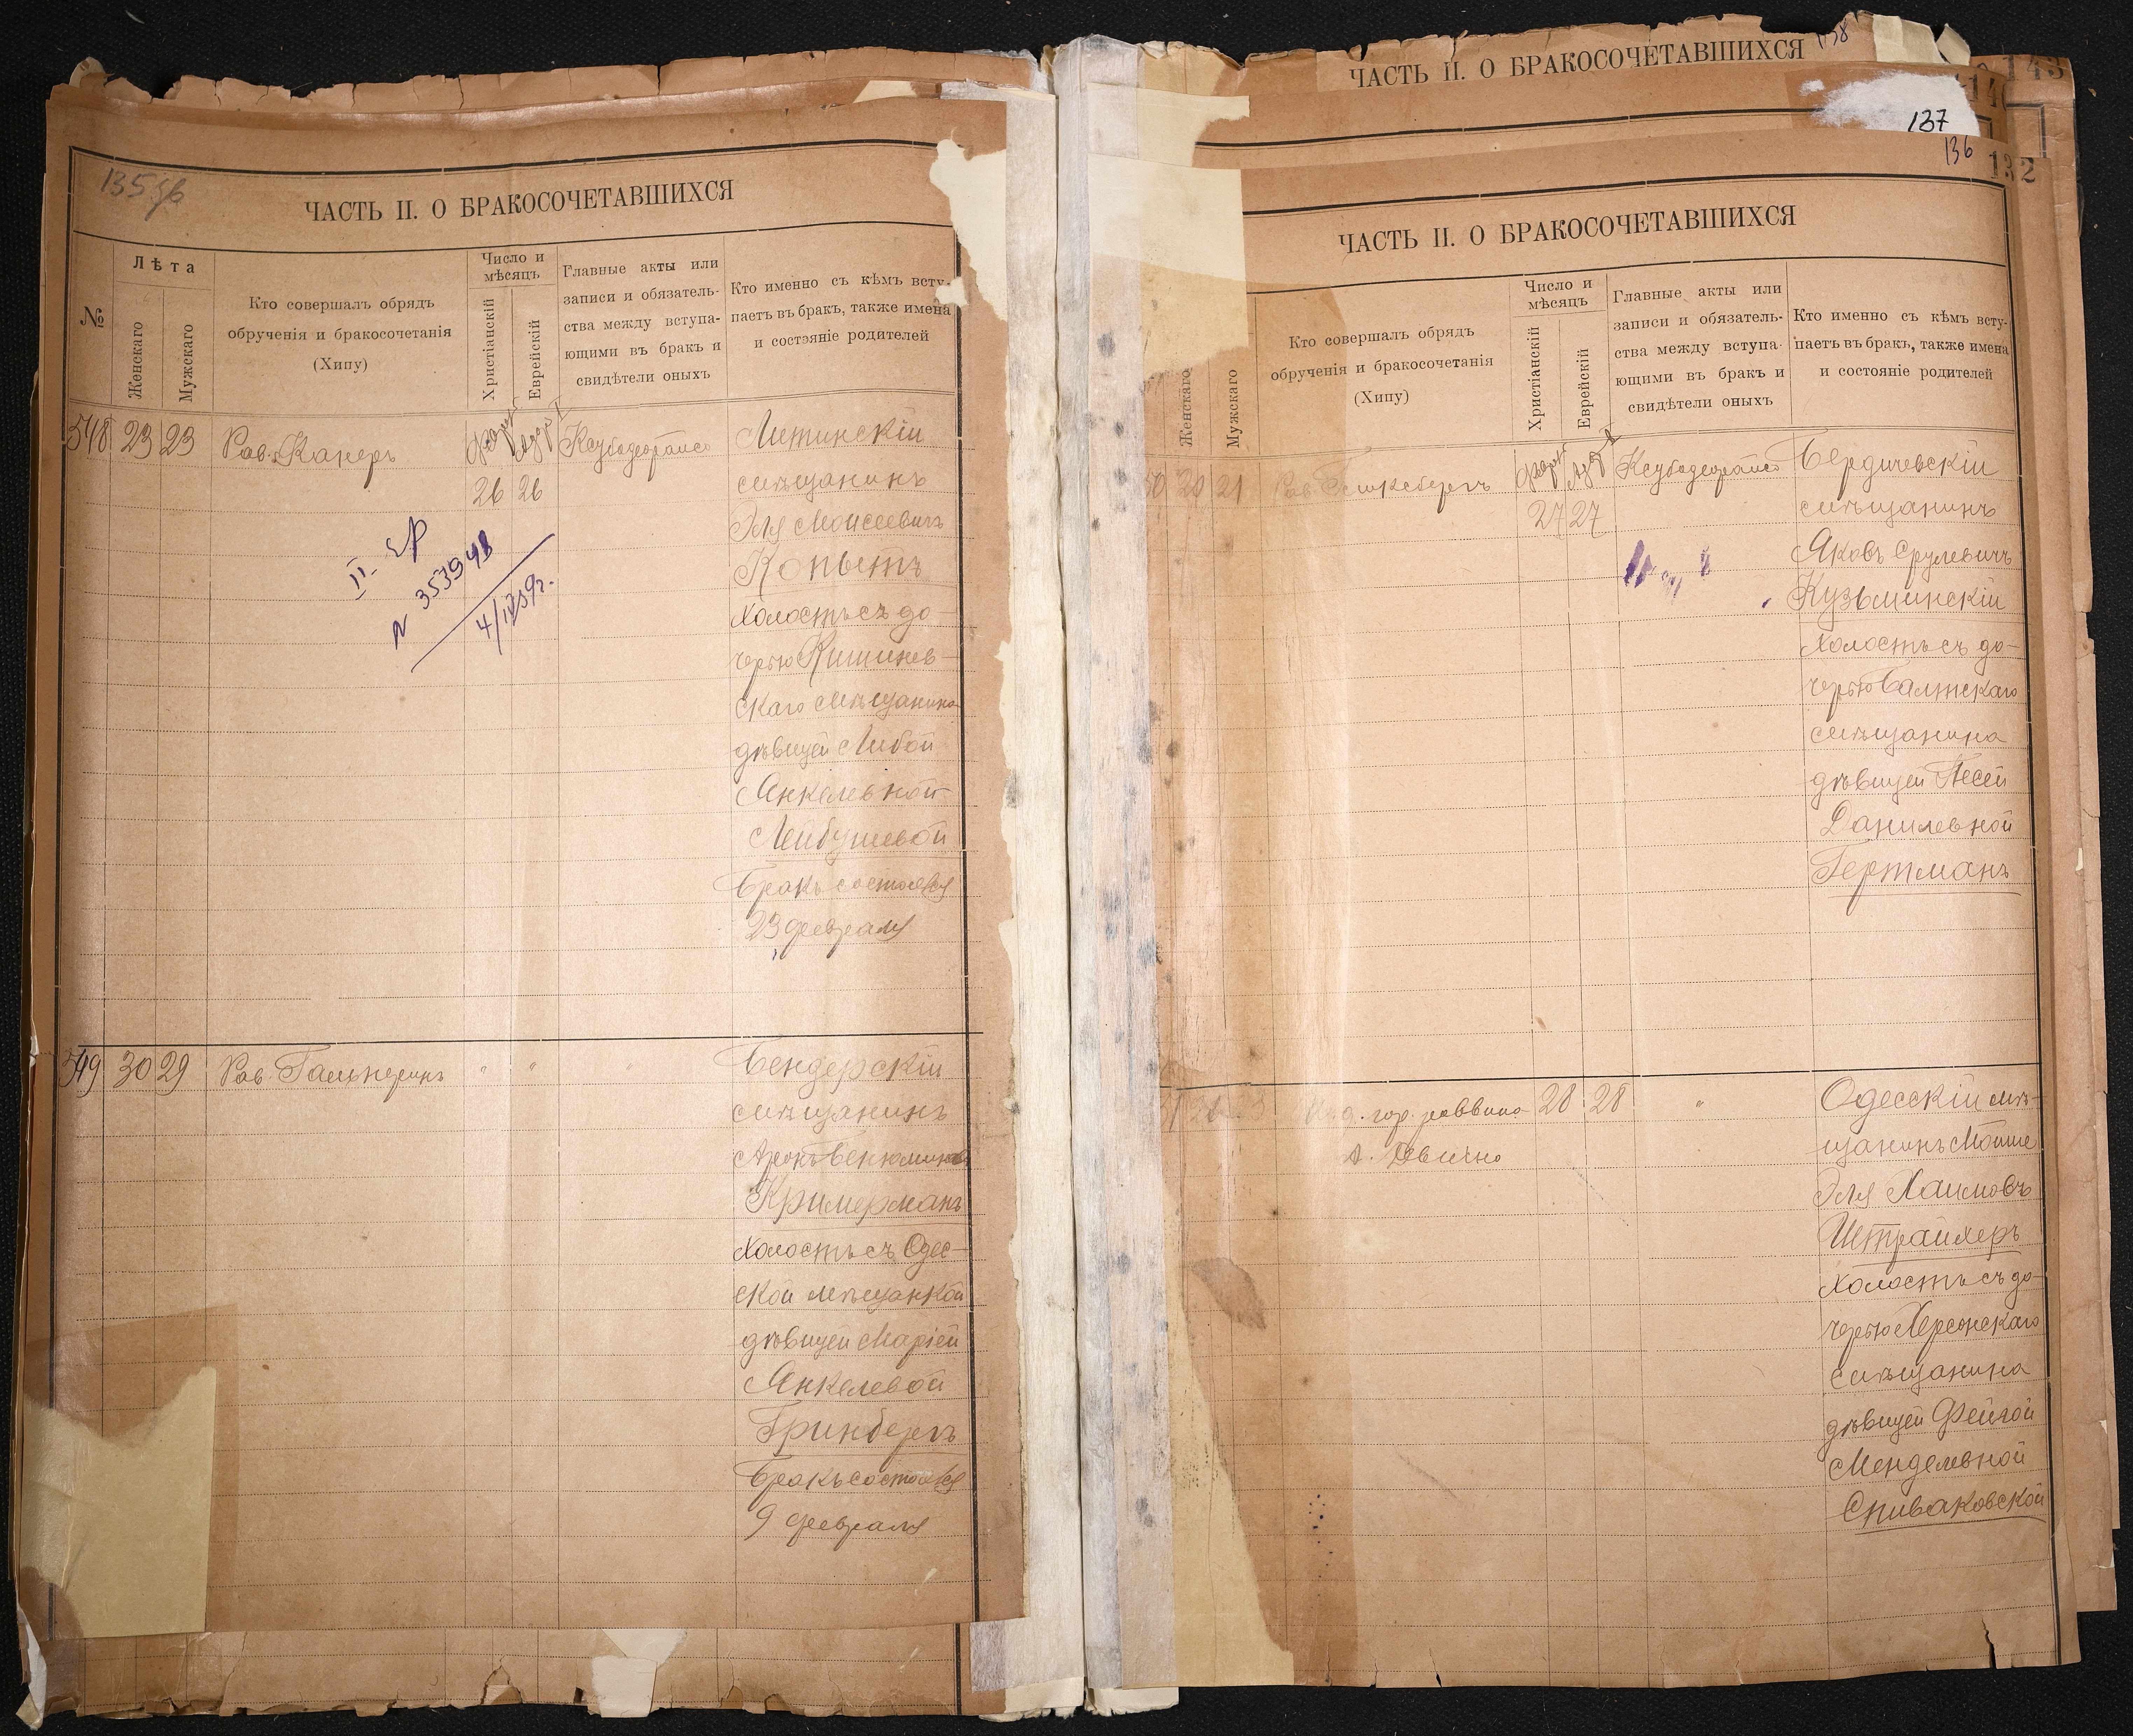 135 об
ЧАСТЬ II. О БРАКОСОЧЕТАВШИХСЯ
№
Лѣта
Женскаго
Мужскаго
Кто совершалъ обрядъ
обрученія и бракосочетанія
(Хипу)
Число и
мѣсяцъ
Христіанскій
Еврейскій
Главные акты или
записи и обязатель-
ства между вступа-
ющими въ бракъ и
свидѣтели оныхъ
Кто именно съ кѣмъ всту-
паетъ въ бракъ, также имена
и состояніе родителей
548 23 23 Рав. Канеръ
26 26
Литинскій
мѣщанинъ
Эля Моисеевичъ
Копытъ
холостъ съ до-
черью Кишинев-
скаго мѣщанина
дѣвицей Либой
Янкелевной
Лейбушевой
Бракъ состоялся
23 февраля
II-
N 353948
4/IV 59г.
549 30 29 Рав. Гальперинъ " " "
Бендерскій
мѣщанинъ
Аронъ Веньяминовъ
Кримерманъ
холостъ съ Одес-
ской мѣщанкой
дѣвицей Маріей
Янкелевой
Гринбергъ
Бракъ состоялся
9 февраля
ЧАСТЬ II. О БРАКОСОЧЕТАВШИХСЯ
138
143
137
136
132
ЧАСТЬ II. О БРАКОСОЧЕТАВШИХСЯ
Женскаго
Мужскаго
Кто совершалъ обрядъ
обрученія и бракосочетанія
(Хипу)
Число и
мѣсяцъ
Христіанскій
Еврейскій
Главные акты или
записи и обязатель-
ства между вступа-
ющими въ бракъ и
свидѣтели оныхъ
Кто именно съ кѣмъ всту-
паетъ въ бракъ, также имена
и состояніе родителей
50 20 21 Рав.
27 27
Бердичевскій
мѣщанинъ
Яковъ Срулевичъ
Кузьминскій
холостъ съ до-
черью Балтскаго
мѣщанина
дѣвицей Песей
Данилевной
Гертманъ
гор. раввина 28 28 "
Одесскій мѣ-
щанинъ Мойше
Эля Хаимовъ
Штрайхеръ
холостъ съ до-
черью Херсонскаго
мѣщанина
дѣвицей Фейгой
Менделевной
Спиваковской